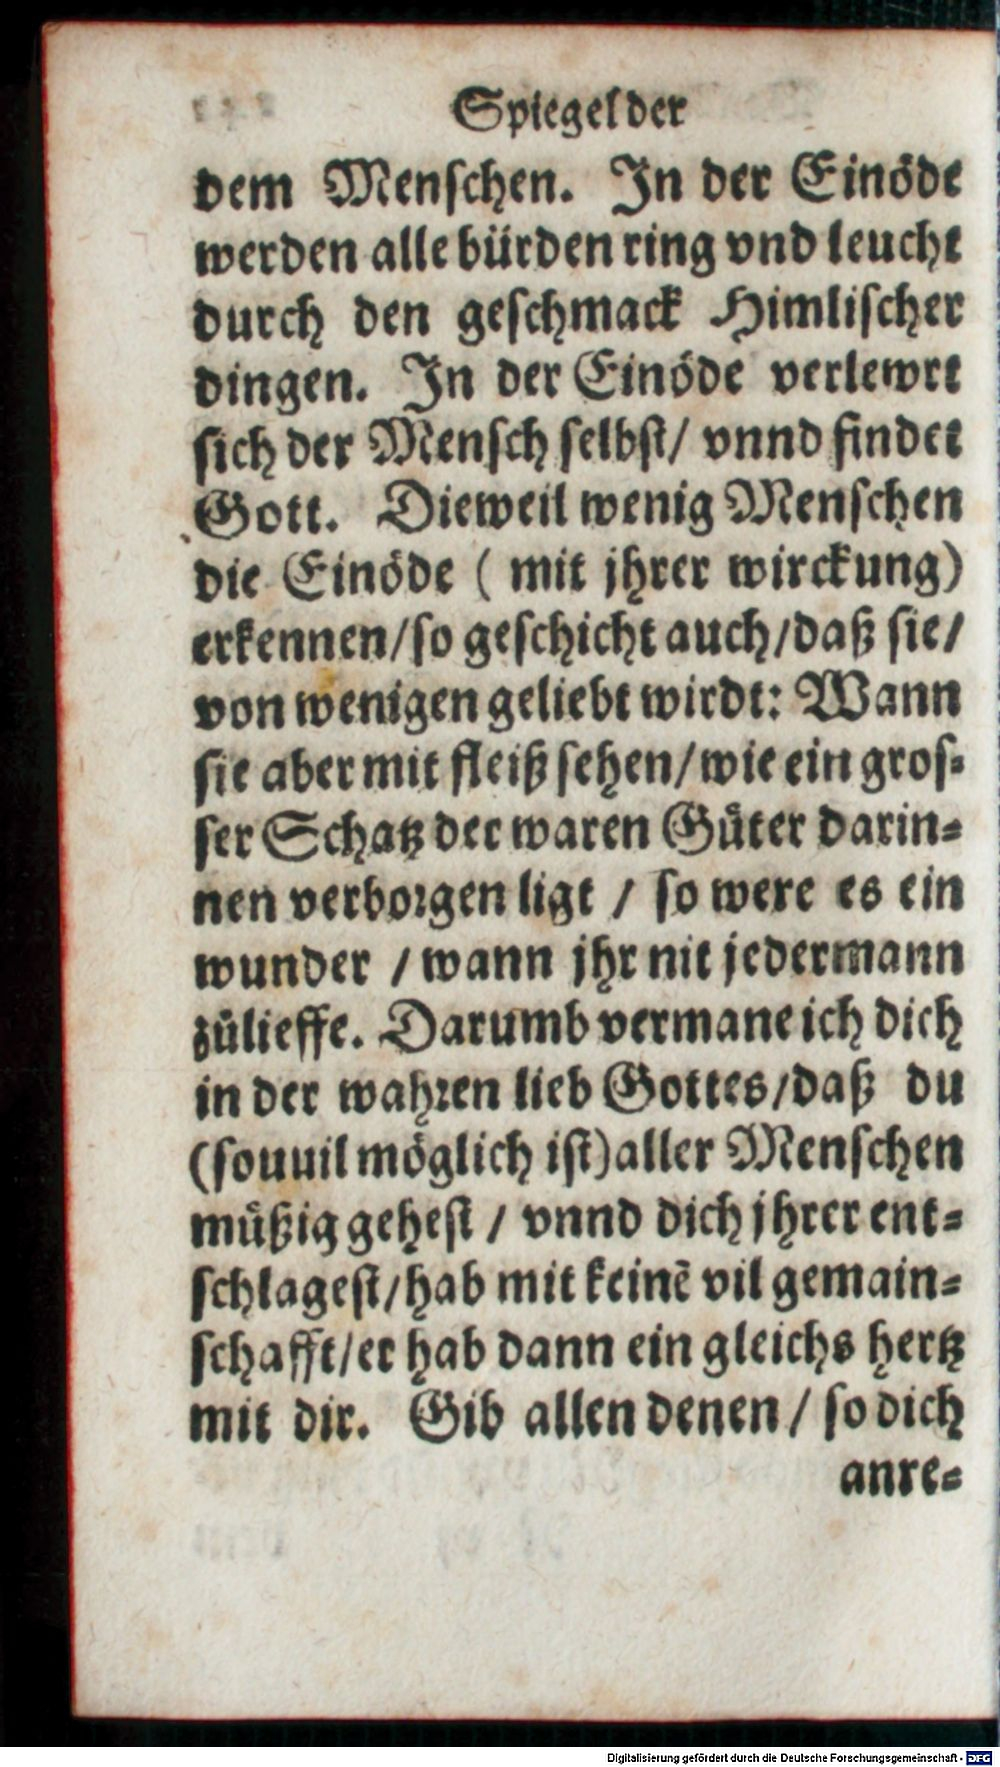 Spiegel der
dem Menschen. In der Einöde
werden alle bürden ring vnd leucht
durch den geschmack Himlischer
dingen. In der Einöde verlewrt
sich der Mensch selbst/ vnnd findet
Gott. Dieweil wenig Menschen
die Einöde ( mit jhrer wirckung)
erkennen/so geschicht auch/daß sie/
von wenigen geliebt wirdt: Wann
sie aber mit fleiß sehen/wie ein gros-
ser Schatz der waren Güter darin-
nen verborgen ligt / so were es ein
wunder / wann jhr nit jedermann
zůlieffe. Darumb vermane ich dich
in der wahren lieb Gottes/daß du
(souuil möglich ist)aller Menschen
müßig gehest / vnnd dich jhrer ent-
schlagest/hab mit keinē vil gemain-
schafft/er hab dann ein gleichs hertz
mit dir. Gib allen denen / so dich
anre-
Digitalisierung gefördert durch die Deutsche Forschungsgemeinschaft - DFG